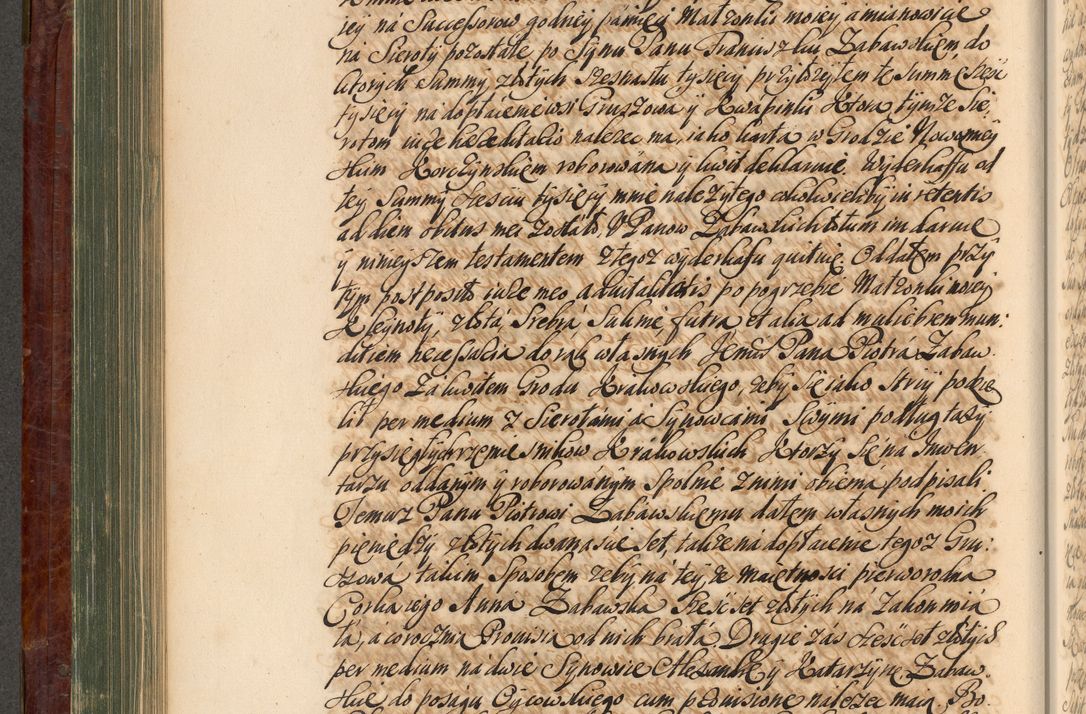 jey ná Successorow godney pámięci Małżonki moiey a mianowicie
na Sieroty pozostałe po Synu Panu Franciszku Zabawskiem, do
ktorych Summy złotych Szesnastu tysięcy przyłożyłem te Summe Sześć
tysięcy na dopłacenie wsi Gruszowa y Kwapinki Ktora tymże Sie,
rotom iure haereditatis nalezec ma, iako karta w Grodzie Nowomiey
skim Korczyńskiem roborowána y kwit deklaruie. Wyderkaffu od
tey Summy sześciu tysięcy mnie należytego cokolwiekby in retentis
ad diem obitus mei zostáło, P Panow Zabawskich totum im daruie
y ninieyszem testamentem z tegoż wyderkafu quituię. Oddałem przy
tym postposito iure meo advitalitatis po pogrzebie Małżonki moiey
Kleynoty złotá, Srebrá Suknie futra et alia ad muliebrem mun:
ditiem necessaria do rąk własnych Jemci Pana Piotrá Zabaw.
skiego Za kwitem Grodu Krakowskiego, żeby się iako Stryi podzie
lił per medium z Sierotámi a Synowcami Swymi podług taxy
przysięgłych rzemieslnikow Krákowskich Ktorzy się na Inwen
tarzu oddánym y roborowánym Spolnie z nimi obiemá podpisáli
Temuż Panu Piotrowi Zabáwskiemu dałem własnych moich
pieniędzy złotych dwanascie set, także na dopłacenie tegoż Gru:
szowá takim Sposobem żeby na tey że maiętnosci pierworodna
Corka iego Anna Zabawska sześć set złotych ná Zakon miá
łá, a coroczna Prowisia od nich brała Drugie zás sześć set złotych
per medium na dwie Synowie Alexandrę y Katarzynę Zabaw.
skie do posagu Oycowskiego cum provisione należec maią. Bo